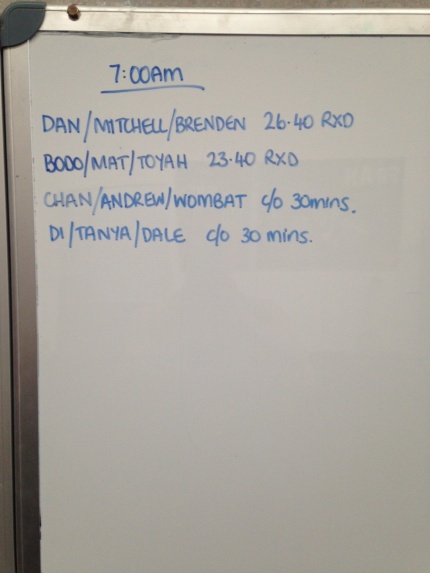 7:00AM
DAN/MITCHELL/BRENDEN 26.40 RXD
BODO/MAT/TOYAH 23.40 RXD
CHAN/ANDREW/WOMBAT c/o 30mins.
DI/TANYA/DALE c/o 30 mins.